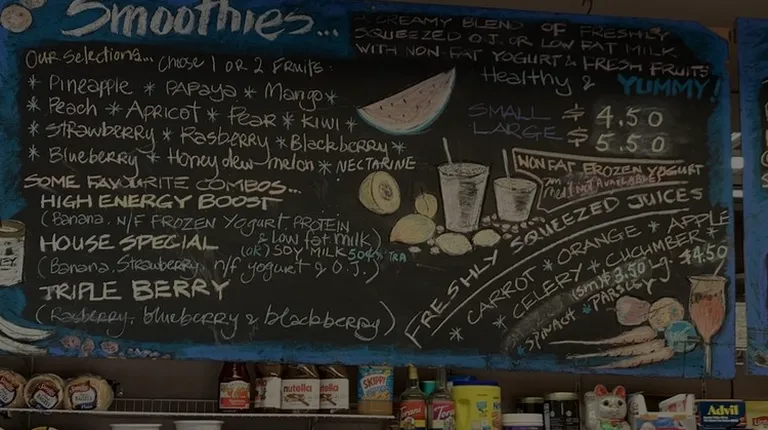 Smoothies...
A CREAMY BLEND OF FRESHLY
SQUEEZED O.J. OR LOW FAT MILK
WITH NON-FAT YOGURT & FRESH FRUITS
Healthy & YUMMY!
SMALL $ 4.50
LARGE $ 5.50
Our Selections... Chose 1 OR 2 Fruits.
* Pineapple * PAPAYA * Mango *
* Peach * Apricot * Pear * KIWI *
* Strawberry * Rasberry * Blackberry *
* Blueberry * Honeydew melon * NECTARINE
SOME FAVOURITE COMBOS...
HIGH ENERGY BOOST
(Banana. N/F FROZEN Yogurt PROTEIN
& Low fat milk)
HOUSE SPECIAL
(or) SOY MILK 50¢ XTRA
(Banana. Strawberry n/f yogurt & O.J.)
TRIPLE BERRY
(Rasberry, blueberry & blackberry)
NONFAT FROZEN YOGURT
(NOT AVAILABLE)
FRESHLY SQUEEZED JUICES
* CARROT * ORANGE * APPLE
* CELERY * CUCUMBER *
(sm) $3.50 lg. $4.50
* SPINACH * PARSLEY
nutella
nutella
SKIPPY
Torani
Torani
Advil